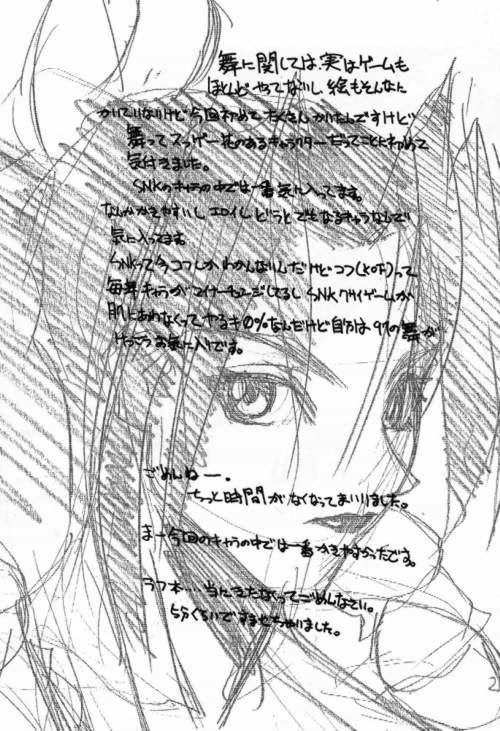 舞に関しては、実はゲームも
ほとんどやってないし、絵もそんなに
かいていないけど今回初めてたくさんかいたんですけど
舞ってスッゲー花のあるキャラクターだってことに初めて
気付きました。
SNKのキャラの中では一番気に入ってます。
なんかかきやすいし、エロイし、どうとでもなるキャラなんで
気に入ってます
SNKって今コフしかわかんないんだけどコフ(KOF)って
毎年キャラがマイナーチェンジしてるし SNKクサイゲームが
肌にあわなくってやるキ0%なんだけど自分は97の舞が
けっこうお気に入りです。
ごめんねー。
ちっと時間がなくなってまいりました。
まー今回のキャラの中では一番かきやすかったです。
ラフ本…当にきたなくってごめんなさい。
5分くらいですませちゃいました。